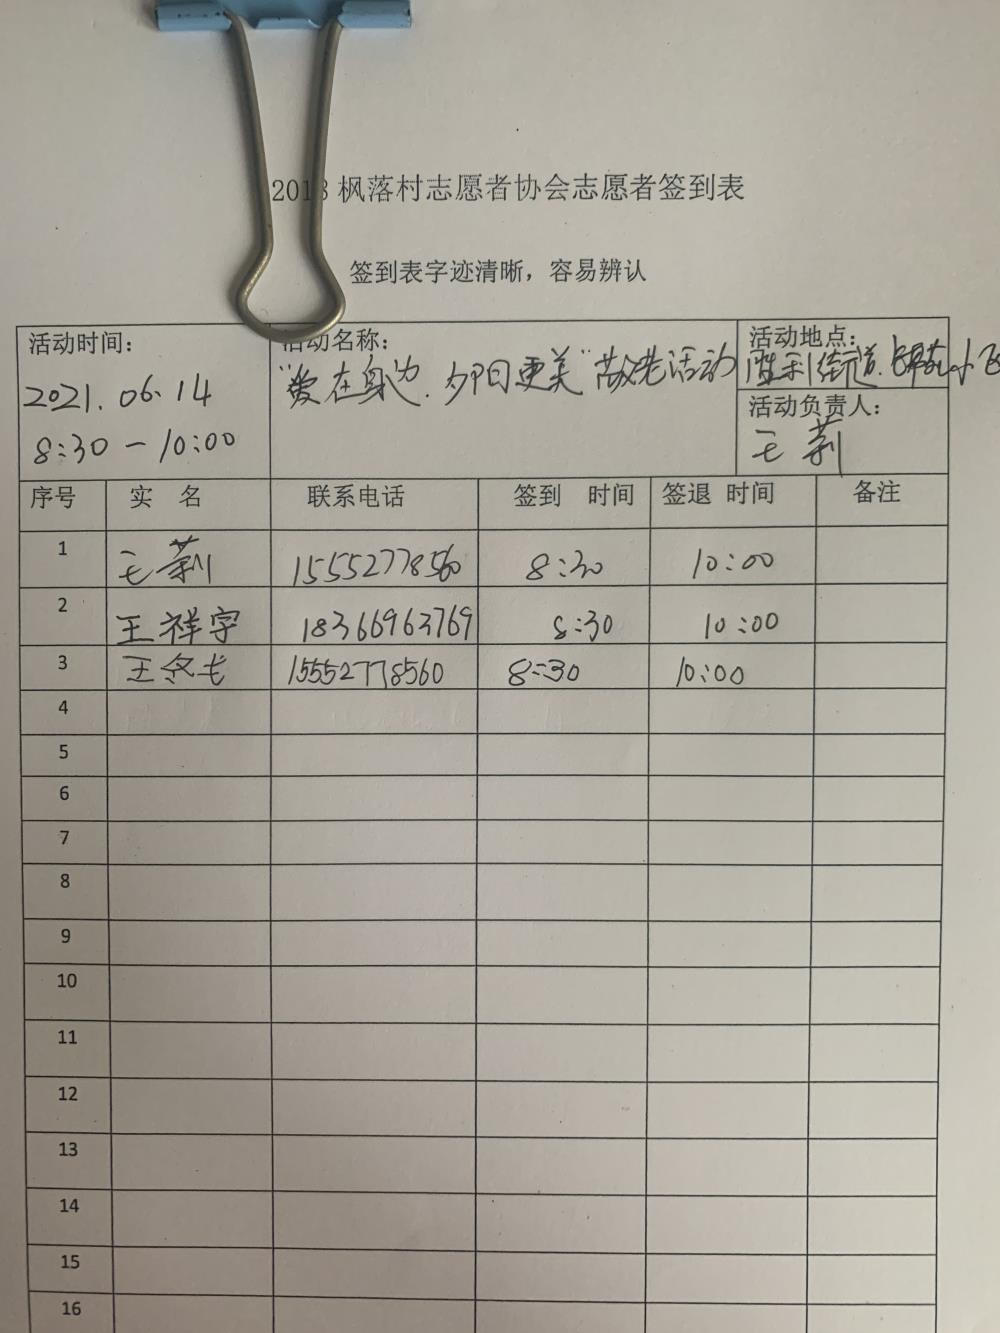 2018 枫落村志愿者协会志愿者签到表
签到表字迹清晰，容易辨认
活动时间：
2021.06.14
8:30 — 10:00
活动名称：
"爱在身边.夕阳更美"敬老活动
活动地点：
胜利街道.
活动负责人：
王莉
序号 实 名 联系电话 签到 时间 签退 时间 备注
1 王莉 15552778560 8:30 10:00
2 王祥宇 18366963769 8:30 10:00
3 王 15552778560 8:30 10:00
4
5
6
7
8
9
10
11
12
13
14
15
16